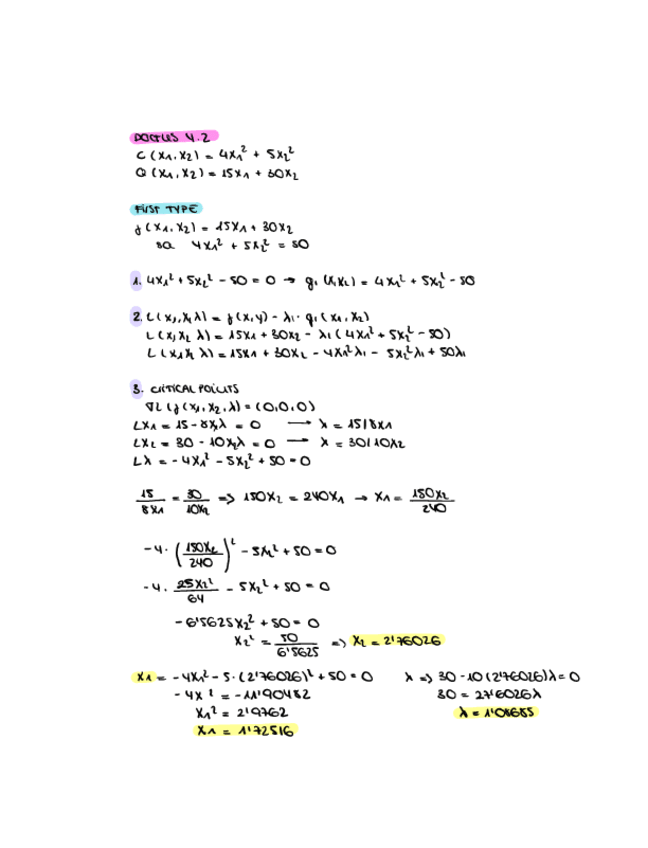 DOCTUS 4.2
C (x1, x2) = 4x1² + 5x2²
Q (x1, x2) = 15x1 + 30x2
FIRST TYPE
f (x1, x2) = 15x1 + 30x2
sa 4x1² + 5x2² = 50
1. 4x1² + 5x2² - 50 = 0 → g1 (x1x2) = 4x1² + 5x2² - 50
2. L (x1, x2 λ) = f (x,y) - λ1 · g1 (x1, x2)
L (x1 x2 λ) = 15x1 + 30x2 - λ1 (4x1² + 5x2² - 50)
L (x1 x2 λ) = 15x1 + 30x2 - 4x1²λ1 - 5x2²λ1 + 50λ1
3. CRITICAL POINTS
∇L (f (x1, x2, λ) = (0,0,0)
Lx1 = 15 - 8x1λ = 0 → λ = 15/8x1
Lx2 = 30 - 10x2λ = 0 → λ = 30/10x2
Lλ = -4x1² - 5x2² + 50 = 0
15/8x1 = 30/10x2 => 150x2 = 240x1 → x1 = 150x2/240
-4 · (150x2/240)² - 5x2² + 50 = 0
-4 · 25x2²/64 - 5x2² + 50 = 0
-6'5625x2² + 50 = 0
x2² = 50/6'5625 => x2 = 2'76026
x1 = -4x1² - 5 · (2'76026)² + 50 = 0 λ => 30 - 10 (2'76026)λ = 0
-4x² = -11'90482 30 = 27'6026λ
x1² = 2'9762 λ = 1'08685
x1 = 1'72516